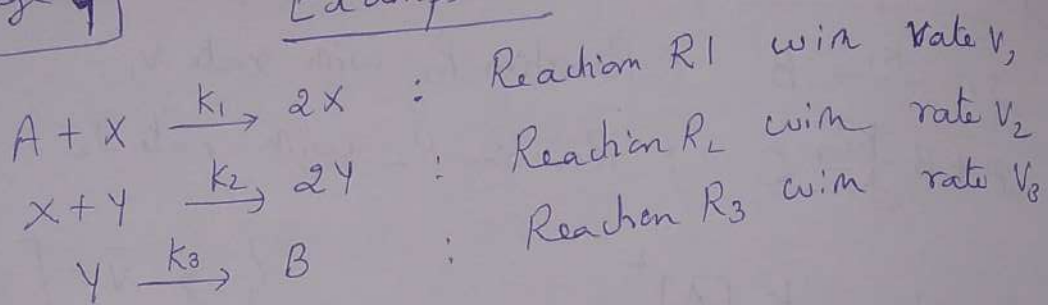 A + X —K₁→ 2X : Reaction R1 with rate V₁
X + Y —K₂→ 2Y : Reaction R₂ with rate V₂
Y —K₃→ B : Reaction R₃ with rate V₃